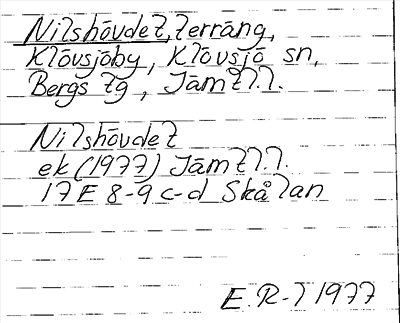 Nilshövdet, terräng,
Klövsjöby, Klövsjö sn,
Bergs tg, Jämtl.l.
Nilshövdet
ek (1977) Jämtl.l.
17E 8-9 c-d Skålan
E.R-l 1977